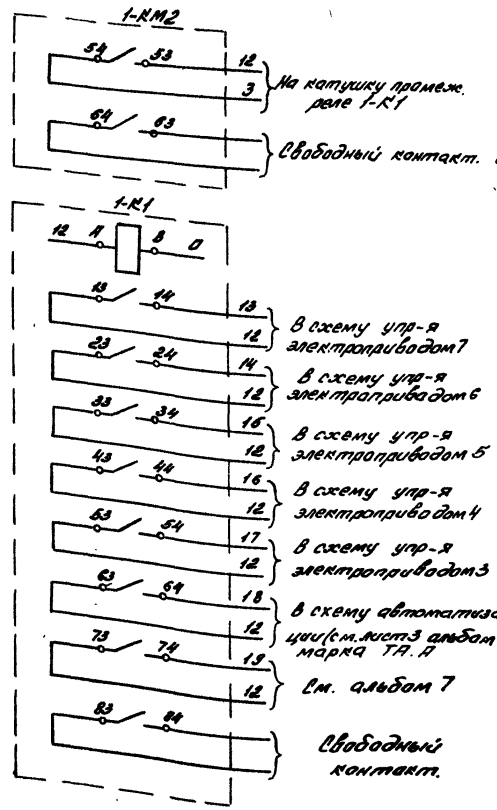 1-КМ2
54 53 12
3
На катушку промеж.
реле 1-К1
64 63
Свободный контакт.
1-К1
12 А В 0
13 14 13
12
В схему упр-я
электроприводом 7
23 24 14
12
В схему упр-я
электроприводом 6
33 34 15
12
В схему упр-я
электроприводом 5
43 44 16
12
В схему упр-я
электроприводом 4
53 54 17
12
В схему упр-я
электроприводом 3
63 64 18
12
В схему автоматиза
ции (см. лист 3 альбом
марка ТА.А
73 74 19
12
См. альбом 7
83 84
Свободный
контакт.